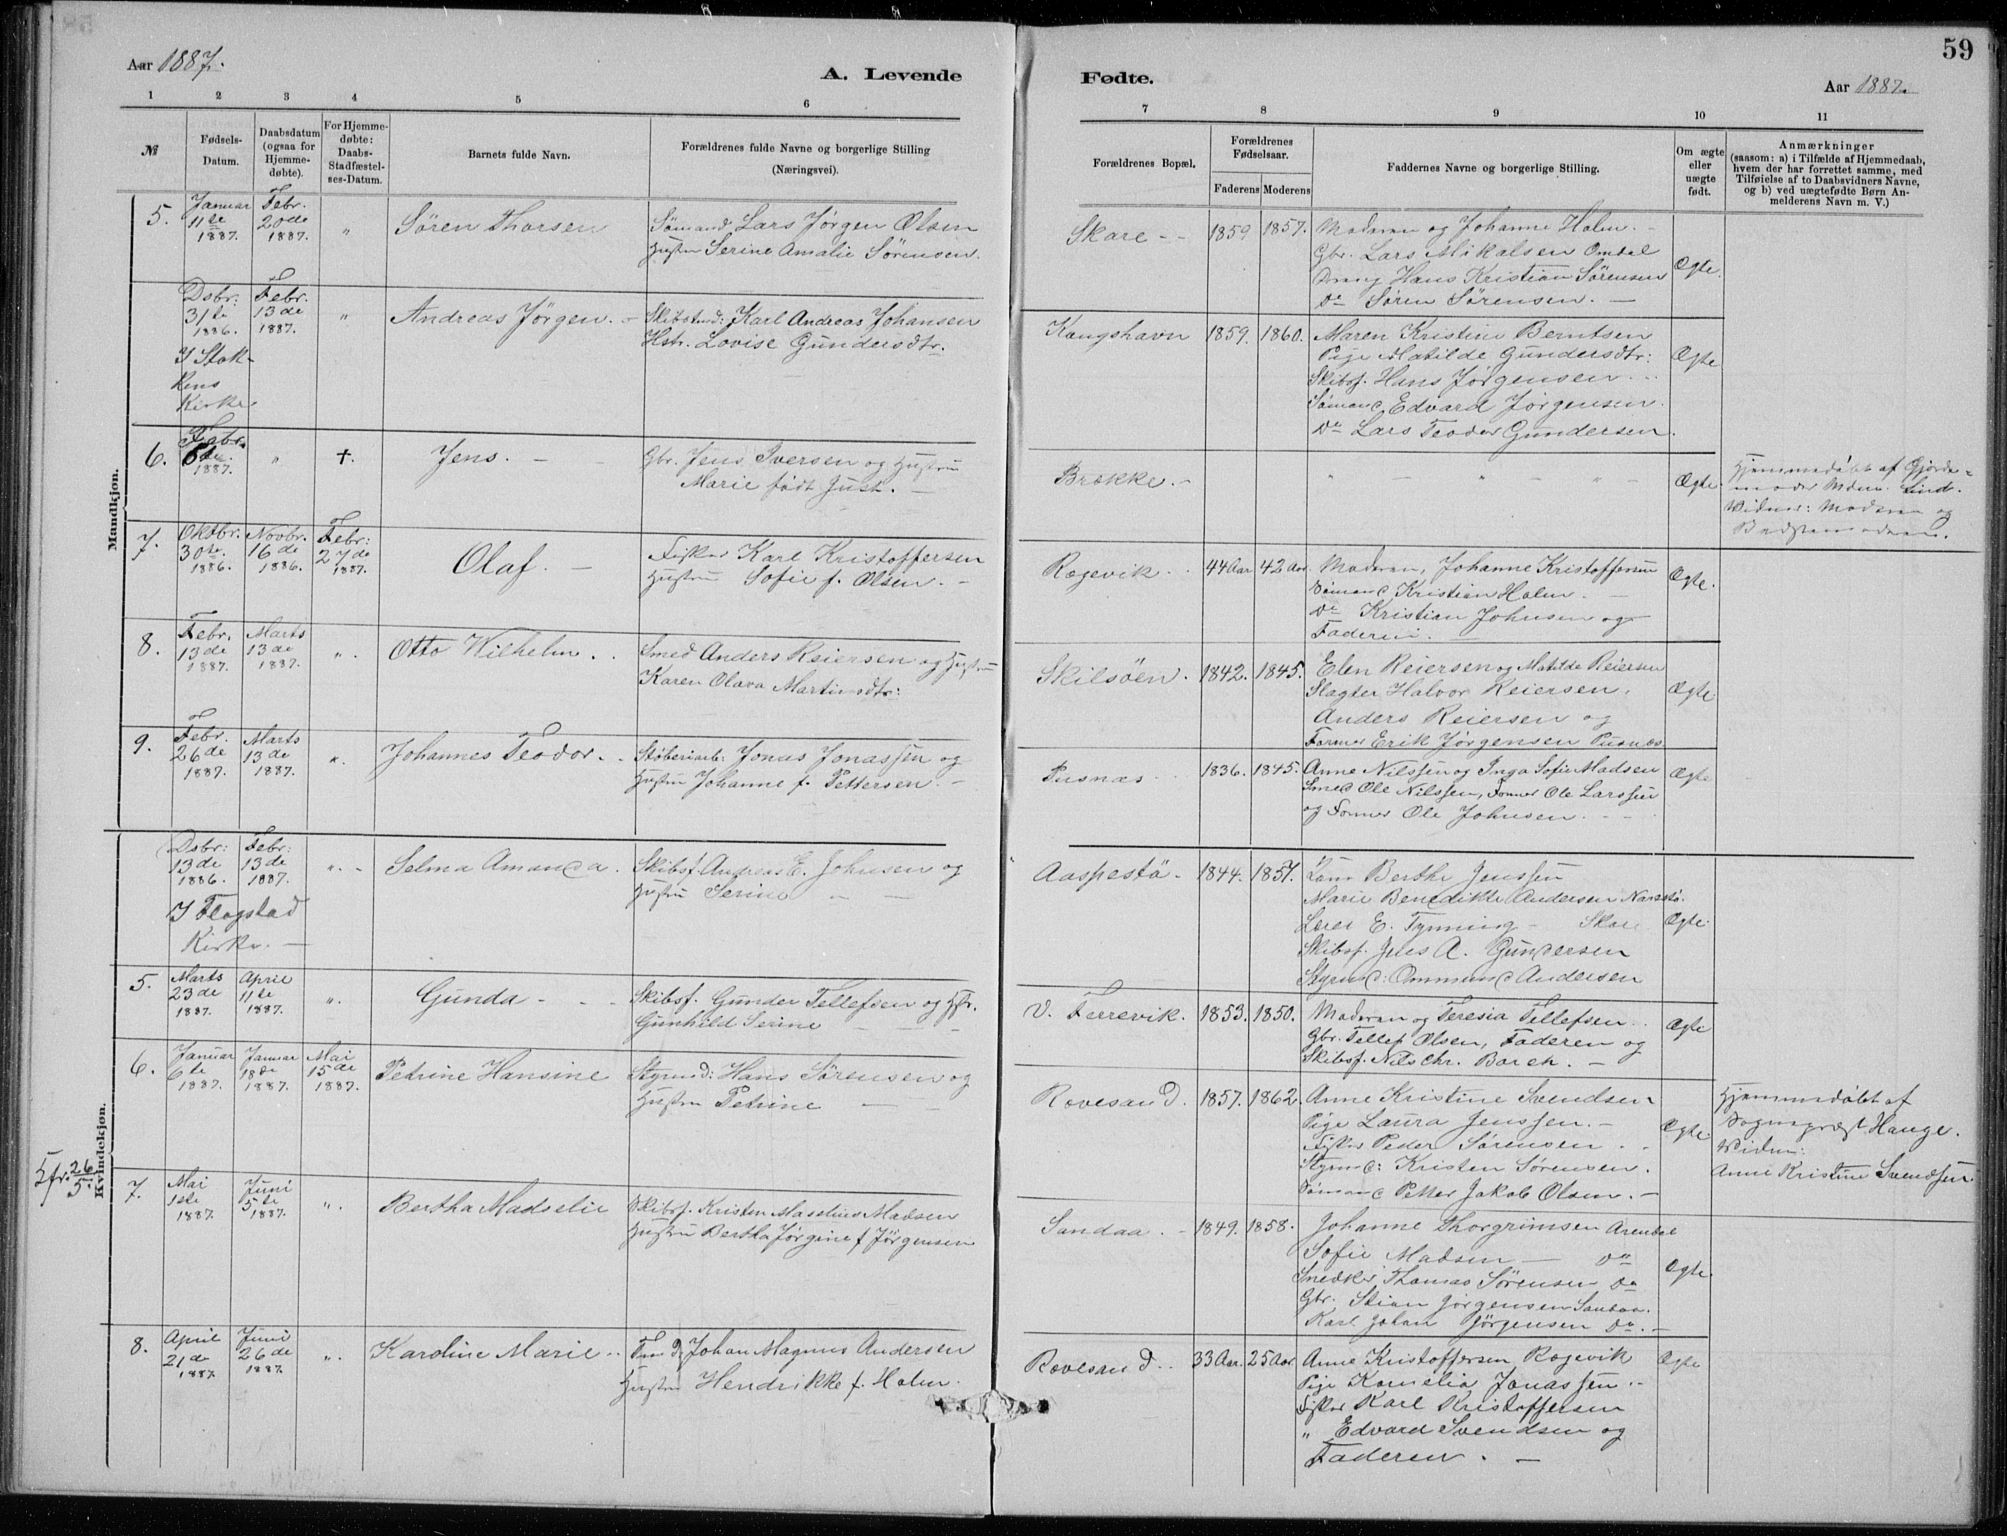 59
Aar 1887.
A. Levende
Fødte.
Aar 1887.
1 2 3 4 5 6
7 8 9 10 11
№
Fødsels-
Datum.
Daabsdatum
(ogsaa for
Hjemme-
døbte).
For Hjemme-
døbte:
Daabs-
Stadfæstel-
ses-Datum.
Barnets fulde Navn.
Forældrenes fulde Navne og borgerlige Stilling
(Næringsvei).
Forældrenes Bopæl.
Forældrenes
Fødselsaar.
Faderens Moderens
Faddernes Navne og borgerlige Stilling.
Om ægte
eller
uægte
født.
Anmærkninger
(saasom: a) i Tilfælde af Hjemmedaab,
hvem der har forrettet samme, med
Tilføielse af to Daabsvidners Navne,
og b) ved uægtefødte Børn An-
melderens Navn m. V.)
Mandkjøn.
5.
Januar
11te
1887.
Febr.
20de
1887.
"
Søren Thorsen
Sømand Lars Jørgen Olsen
Hustru Serine Amalie Sørensen.
Skare - -
1859 1857.
Moderen og Johanne Holm. -
Gbr. Lars Mikalsen Omdal
Dreng Hans Kristian Sørensen
Do Søren Sørensen. —
Ægte.
Dsbr:
31te
1886.
I Stok-
kens
Kirke.
Febr.
13de
1887.
"
Andreas Jørgen. -
Skibstmd: Karl Andreas Johansen
Hstr. Lovise Gundersdtr.
Kongshavn
1859. 1860.
Maren Kristine Berntsen
Pige Matilde Gundersdtr:
Skibsf. Hans Jørgensen ...
Sømand Edvard Jørgensen.
Do Lars Teodor Gundersen.
Ægte
6.
Febr.
6te
1887.
"
†.
Jens. - -
Gbr. Jens Iversen og Hustru
Marie født Just. —
Brække. -
" - " - " -
Ægte.
Hjemmedøbt af Gjorde-
moder Mdm. Lind.
Vidner: Moderen og
Bedstemoderen.
7.
Oktbr.
30te
1886.
Novbr.
16de
1886.
Febr:
27de
1887.
Olaf. —
Fisker Karl Kristoffersen
Hustru Sofie f. Olsen. -
Rægevik. .
44 Aar 42 Aar.
Moderen, Johanne Kristoffersen
Sømand Kristian Holm. —
Do Kristian Johnsen og
Faderen. —
Ægte.
8.
Febr.
13de
1887.
Marts
13de
1887.
".
Otto Wilhelm. .
Smed Anders Reiersen og Hustru
Karen Olava Martinsdtr:
Skilsøen.
1842. 1845.
Elen Reiersen og Matilde Reiersen
Slagter Halvor Reiersen.
Anders Reiersen og
Former Erik Jørgensen Pusnæs
Ægte
9.
Febr.
26de
1887.
Marts
13de
1887.
".
Johannes Teodor. .
Støberiarb: Jonas Jonassen og
Hustru Johanne f. Pettersen. -
Pusnæs
1836. 1845.
Anne Nilssen og Inga Sofie Madsen
Smed Ole Nilssen, Former Ole Larssen
og Former Ole Johnsen. - -
Ægte
Kvindekjøn.
Dsbr:
13de
1886.
I Flagstad
Kirke. —
Febr:
13de
1887.
". -
Selma Amanda.
Skibsf. Andreas E. Johnsen og
Hustru Serine — —
Aaspestø.
1844. 1857.
Berthe Jenssen
Marie Benedikte Andersen Narestø.
Lærer E. Tynning - Skare
Skibsf. Jens A. Gundersen
Styrmd: Ommund Andersen
Ægte.
5.
Marts
23de
1887.
April
11te
1887.
".
Gunda - - -
Skibsf. Gunder Tellefsen og Hstr.
Gunhild Serine — -
V. Terrevik.
1853. 1850.
Moderen og Teresia Tellefsen..
Gbr. Tellef Olsen, Faderen og
Skibsf. Nils Chr. Borch. —
Ægte
6.
Januar
6te
1887.
Januar
18de
1887.
Mai
15de
1887.
Petrine Hansine
Styrmd: Hans Sørensen og
Hustru Petrine — —
Rævesand.
1857. 1862.
Anne Kristine Svendsen
Pige Laura Jenssen. -
Fisker Peder Sørensen .
Styrmd: Kristen Sørensen.
Sømand Petter Jakob Olsen. —
Ægte
Hjemmedøbt af
Sogneprest Hauge.
Vidne:
Anne Kristine Svendsen
Kfr. 26/5.
7.
Mai
1ste
1887.
Juni
5te
1887.
".
Bertha Madselie
Skibsf. Kristen Maselius Madsen
Hustru Bertha Jørgine f Jørgensen
Sandaa. -
1849. 1858.
Johanne Thorgrimsen Arendal
Sofie Madsen — Do
Snedker Thomas Sørensen Do
Gbr. Stian Jørgensen Sandaa.
Karl Johan Jørgensen Do. —
Ægte.
8.
April
21de
1887.
Juni
26de
1887.
".
Karoline Marie ..
Johan Magnus Andersen
Hustru Hendrikke f. Holm.
Rævesand..
33 Aar. 25 Aar
Anne Kristoffersen Rægevik
Pige Kornelia Jonassen ..
Fisker Karl Kristoffersen
" Edvard Svendsen og
Faderen . —
Ægte